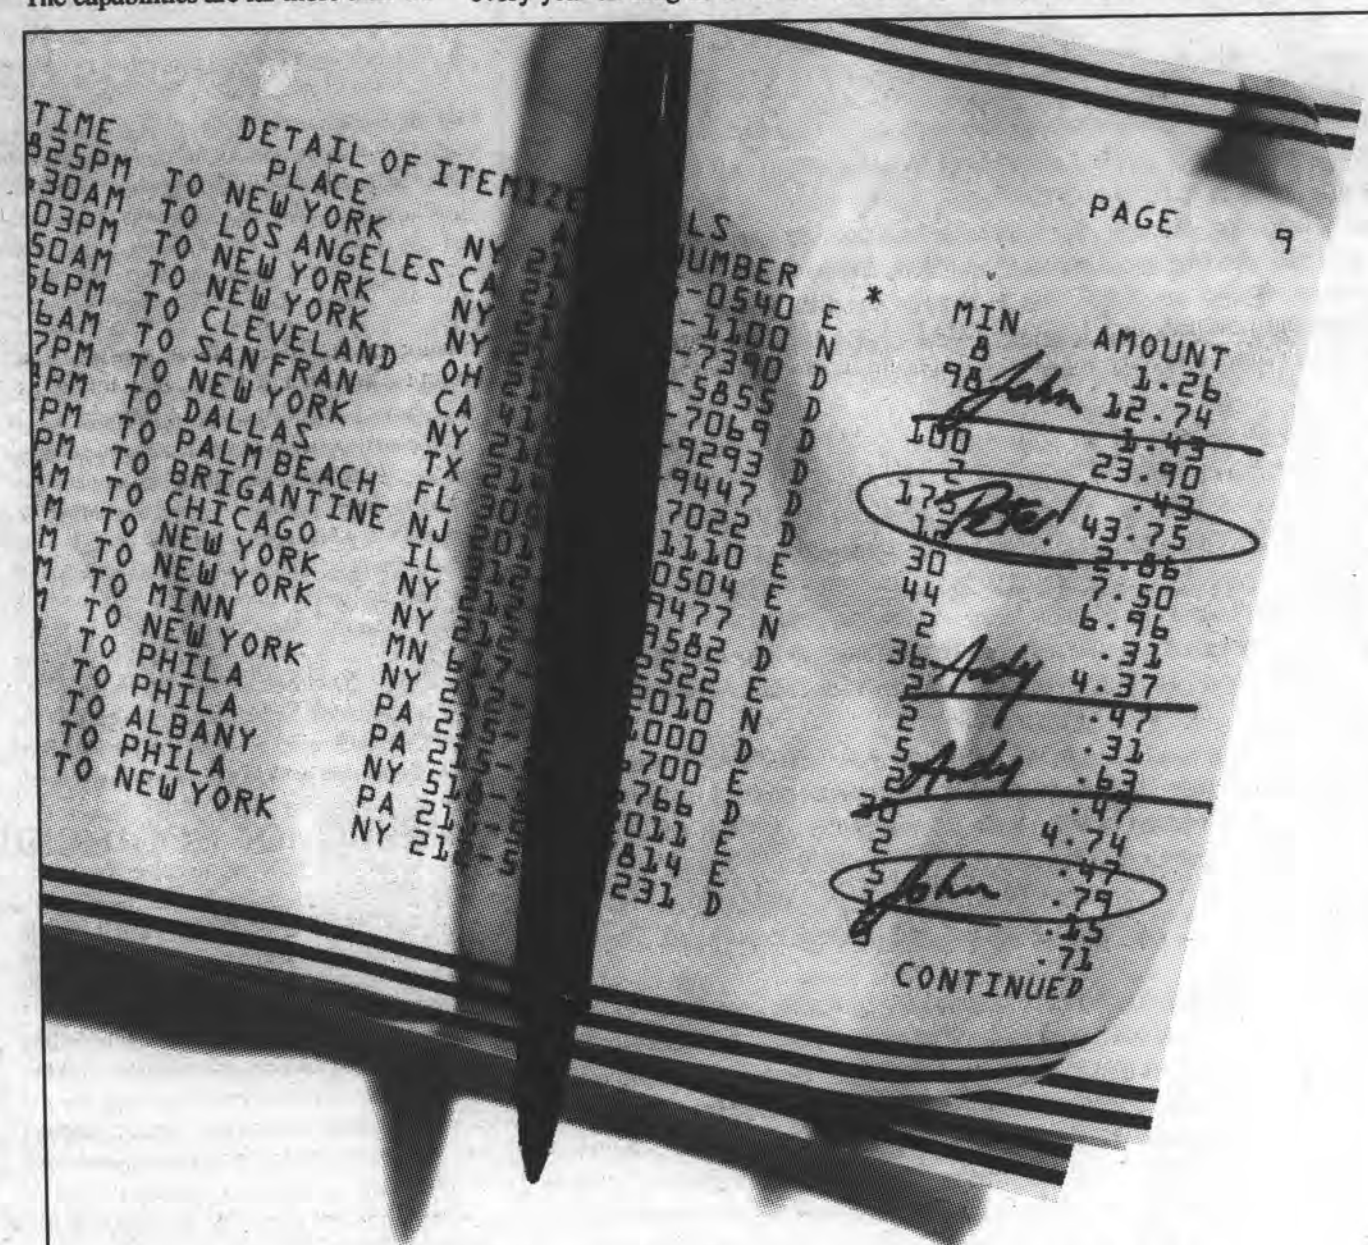 PAGE 9
DETAIL OF ITEMIZE LS
TIME PLACE UMBER * MIN AMOUNT
825PM TO NEW YORK NY 21 -0540 E 8 1.26
30AM TO LOS ANGELES CA 21 -1100 N 98 John 12.74
03PM TO NEW YORK NY 21 -7390 D 1.43
50AM TO NEW YORK NY 21 -5855 D 100 23.90
56PM TO CLEVELAND OH 21 -7069 D 2 .43
6AM TO SAN FRAN CA 41 -9293 D 175 Peter! 43.75
7PM TO NEW YORK NY 21 -9447 D 12 2.86
PM TO DALLAS TX 21 7022 D 30 7.50
PM TO PALM BEACH FL 30 1110 E 44 6.96
PM TO BRIGANTINE NJ 0504 E 2 .31
AM TO CHICAGO IL 9477 N 36 Andy 4.37
M TO NEW YORK NY 9582 D 2 .47
M TO NEW YORK NY 2522 E 2 .31
M TO MINN MN 2010 N 5 Andy .63
TO NEW YORK NY 000 D 2 .47
TO PHILA PA 700 E 30 4.74
TO PHILA PA 766 D 2 .47
TO ALBANY NY 51 011 E 5 John .79
TO PHILA PA 21 814 E 1 .15
TO NEW YORK NY 212-5 231 D .71
CONTINUED